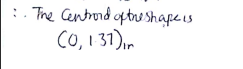 ∴ The Centroid of the shape is
(0, 1.37) in